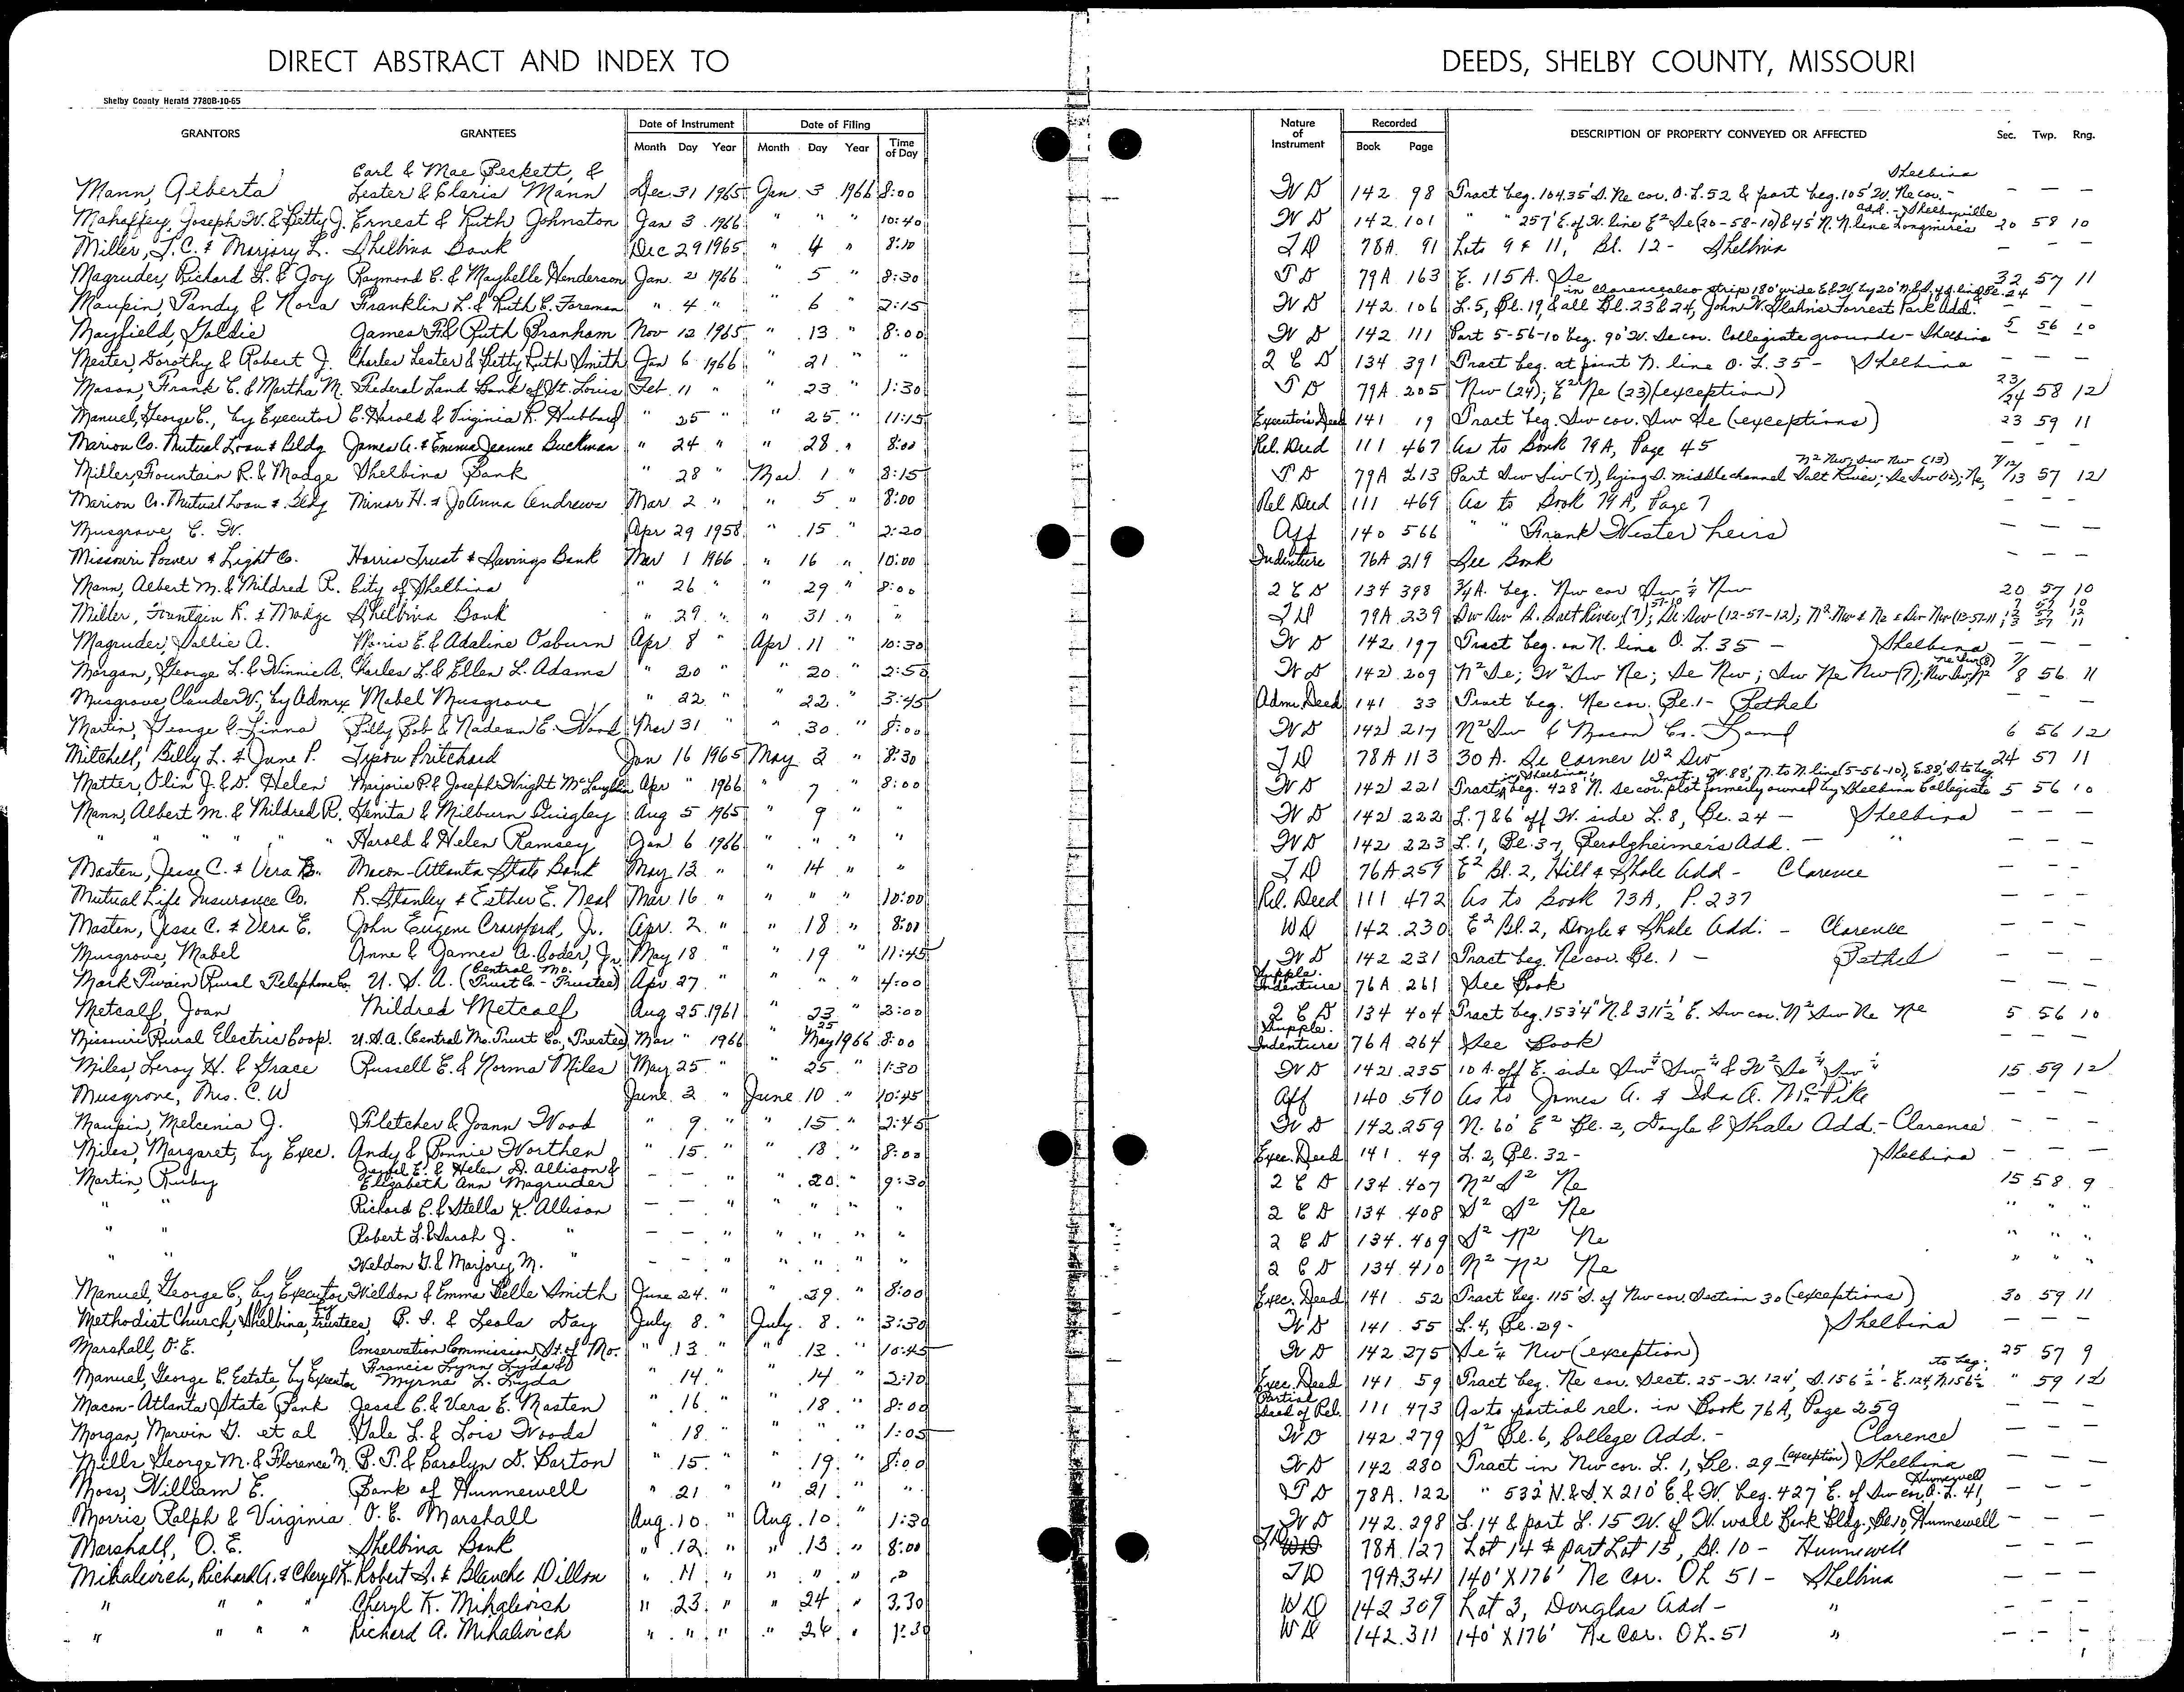 DIRECT ABSTRACT AND INDEX TO DEEDS, SHELBY COUNTY, MISSOURI
Shelby County Herald 7780B-10-65
GRANTORS GRANTEES Date of Instrument Month Day Year Date of Filing Month Day Year Time of Day Nature of Instrument Recorded Book Page DESCRIPTION OF PROPERTY CONVEYED OR AFFECTED Sec. Twp. Rng.
Earl & Mae Beckett, & Shelbina
Mann, Alberta Lester & Claris Mann Dec 31 1965 Jan. 3 1966 8:00 W D 142 98 Tract beg. 104.35' S. Ne cor. O. L. 52 & part beg. 105' W. Ne cor. - — — —
Mahaffey, Joseph W. & Betty J. Ernest & Ruth Johnston Jan 3 1966 " " " 10:40 W D 142 101 " " 257' E. of W. line E² Se (20-58-10) & 45' N. N. line Longmire's add. - Shelbyville 20 58 10
Miller, J. C. & Marjory L. Shelbina Bank Dec 29 1965 " 4 " 8:10 T D 78A 91 Lots 9 & 11, Bl. 12 - Shelbina — — —
Magruder, Richard L. & Joy Raymond C. & Maybelle Henderson Jan. 2 1966 " 5 " 8:30 T D 79A 163 E. 115 A. Se 32 57 11
Maupin, Tandy & Nora Franklin L. & Ruth C. Foreman " 4 " " 6 " 2:15 W D 142 106 L. 5, Bl. 19 & all Bl. 23 & 24, John W. Stahn's Forrest Park Add. — — —
Mayfield, Goldie James F. & Ruth Branham Nov 12 1965 " 13 " 8:00 W D 142 111 Part 5-56-10 beg. 90' W. Se cor. Collegiate grounds - Shelbina 5 56 10
Mester, Dorothy & Robert J. Charles Lester & Betty Ruth Smith Jan 6 1966 " 21 " " 2 C D 134 391 Tract beg. at point N. line O. L. 35 - Shelbina — — —
Mason, Frank C. & Martha M. Federal Land Bank of St. Louis Feb 11 " " 23 " 1:30 T D 79A 205 Nw (24); E² Ne (23) (exception) 23/24 58 12
Manuel, George C., by Executor C. Harold & Virginia R. Hubbard " 25 " " 25 " 11:15 Executor's Deed 141 19 Tract beg. Sw cor. Sw Se (exceptions) 23 59 11
Marion Co. Mutual Loan & Bldg James A. & Emma Jeanne Buckman " 24 " " 28 " 8:00 Rel. Deed 111 467 As to Book 79A, Page 45 — — —
Miller, Fountain R. & Madge Shelbina Bank " 28 " Mar. 1 " 8:15 T D 79A 213 Part Sw Sw (7), lying S. middle channel Salt River; Se Sw (12); Ne, N² Nw, Sw Nw (13) 7/12/13 57 12
Marion Co. Mutual Loan & Bldg Minor H. & JoAnna Andrews Mar 2 " " 5 " 8:00 Rel Deed 111 469 As to Book 79A, Page 7 — — —
Musgrove, C. W. Apr 29 1958 " 15 " 2:20 Aff 140 566 " " Frank Wester heirs — — —
Missouri Power & Light Co. Harris Trust & Savings Bank Mar 1 1966 " 16 " 10:00 Indenture 76A 219 See Book — — —
Mann, Albert M. & Mildred R. City of Shelbina " 26 " " 29 " 8:00 2 C D 134 398 3/4 A. beg. Nw cor Sw ¼ Nw 20 57 10
Miller, Fountain R. & Madge Shelbina Bank " 29 " " 31 " " T D 79A 239 Sw Sw S. Salt River, (7) 57-10; Se Sw (12-57-12); N² Nw & Ne & Sw Nw
Magruder, Sallie A. Morris E. & Adaline Osburn Apr 8 " Apr. 11 " 10:30 W D 142 197 Tract beg. on N. line O. L. 35 - Shelbina — — —
Morgan, George L. & Winnie A. Charles L. & Ellen L. Adams " 20 " " 20 " 2:50 W D 142 209 N² Se; W² Sw Ne; Se Nw; Sw Ne Nw (7); 7/8 56 11
Musgrove, Claude W., by Admrx Mabel Musgrove " 22 " " 22 " 3:45 Adm. Deed 141 33 Tract beg. Ne cor. Bl. 1 - Bethel —
Martin, George C. Linna Billy Bob & Nadean E. Wood Mar 31 " " 30 " 8:00 W D 142 217 N² Sw & Macon Co. Land 6 56 12
Mitchell, Billy L. & June P. Tyson Pritchard Jan 16 1965 May 3 " 8:30 T D 78A 113 30 A. Se Corner W² Sw 24 57 11
Matter, Olin J. & D. Helen Marjorie P. & Joseph Wright McLaughlin Apr " 1966 " 7 " 8:00 W D 142 221 Tract in Shelbina, beg. 428' N. Se cor. plot formerly owned by Shelbina Collegiate Inst., W. 88', N. to N. line (5-56-10), E. 88', S. to beg. 5 56 10
Mann, Albert M. & Mildred R. Henita & Milburn Quigley Aug 5 1965 " 9 " " W D 142 222 L. 7 & 6' off W. side L. 8, Bl. 24 - Shelbina — — —
" " " " Harold & Helen Ramsey Jan 6 1966 " " " " W D 142 223 L. 1, Bl. 37, Gerolgheimer's Add. — " — — —
Masten, Jesse C. & Vera E. Macon-Atlanta State Bank May 13 " " 14 " " T D 76A 259 E² Bl. 2, Hill & Shale Add - Clarence — — —
Mutual Life Insurance Co. R. Stanley & Esther E. Neal Mar. 16 " " " " 10:00 Rel. Deed 111 472 As to Book 73A, P. 237 — — —
Masten, Jesse C. & Vera E. John Eugene Crawford, Jr. Apr. 2 " " 18 " 8:01 WD 142 230 E² Bl. 2, Doyle & Shale Add. - Clarence — — —
Musgrove, Mabel Anne & James A. Coder, Jr. May 18 " " 19 " 11:45 W D 142 231 Tract beg. Ne cor. Bl. 1 - Bethel — — —
Mark Twain Rural Telephone Co. U. S. A. (Central Mo. Trust Co. - Trustee) Apr 27 " " " " 4:00 Supple. Indenture 76A 261 See Book — — —
Metcalf, Joan Mildred Metcalf Aug 25 1961 " 23 " 2:00 2 C D 134 404 Tract beg. 1534" N. & 311½' E. Sw cor. N² Sw Ne Ne 5 56 10
Missouri Rural Electric Coop. U.S.A. (Central Mo. Trust Co., Trustee) Mar " 1966 " 25 May 1966 8:00 Supple. Indenture 76A 264 See Book — — —
Miles, Leroy H. & Grace Russell E. & Norma Miles May 25 " " 25 " 1:30 W D 142 235 10 A. off E. side Sw¼ Sw¼ & W² Se¼ Sw¼ 15 59 12
Musgrove, Mrs. C. W June 2 " June 10 " 10:45 Aff 140 570 As to James A. & Ida A. McPike — — —
Maupin, Melcenia J. Fletcher & Joann Wood " 9 " " 15 " 2:45 W D 142 259 N. 60' E² Bl. 2, Doyle & Shale Add. - Clarence — — —
Miles, Margaret, by Exec. Andy & Bonnie Worthen " 15 " " 18 " 8:00 Exec. Deed 141 49 L. 2, Bl. 32 - Shelbina — — —
Martin, Ruby E. & Helen D. Allison & Elizabeth Ann Magruder — — " " 20 " 9:30 2 C D 134 407 N² S² Ne 15 58 9
" " Richard C. & Stella K. Allison — — " " " " " 2 C D 134 408 S² S² Ne " " "
" " Robert L. & Sarah J. " — — " " " " " 2 C D 134 409 S² N² Ne " " "
" " Weldon G. & Marjory M. " — — " " " " " 2 C D 134 410 N² N² Ne " " "
Manuel, George C., by Executor Weldon & Emma Belle Smith June 24 " " 29 " 8:00 Exec. Deed 141 52 Tract beg. 115' S. of Nw cor. Section 30 (exceptions) 30 59 11
Methodist Church, Shelbina, trustees, B. I. & Leola Day July 8 " July 8 " 3:30 W D 141 55 L. 4, Bl. 29 - Shelbina — — —
Marshall, O. E. Conservation Commission, St. of Mo. " 13 " " 13 " 10:45 W D 142 275 Se¼ Nw (exception) 25 57 9
Manuel, George C. Estate, by Executor Francis Lynn Lyda & Myrna L. Lyda " 14 " " 14 " 2:10 Exec. Deed 141 59 Tract beg. Ne cor. Sect. 25 - W. 124', S. 156½' - E. 124', N. 156½' to beg. " 59 12
Macon-Atlanta State Bank Jesse C. & Vera E. Masten " 16 " " 18 " 8:00 Partial Deed of Rel. 111 473 As to partial rel. in Book 76A, Page 259 — — —
Morgan, Marvin G. et al Gale L. & Lois Woods " 18 " " " " 1:05 W D 142 279 S² Bl. 6, College Add. - Clarence — — —
Mills George M. & Florence M. B. T. & Carolyn D. Barton " 15 " " 19 " 8:00 W D 142 280 Tract in Nw cor. L. 1, Bl. 29 - (exception) Shelbina — — —
Moss, William E. Bank of Hunnewell " 21 " " 21 " " T D 78A 122 " 532' N. & S. X 210' E. & W. beg. 427' E. of Sw cor. O. L. 41, Hunnewell — — —
Morris, Ralph & Virginia O. E. Marshall Aug. 10 " Aug. 10 " 1:30 W D 142 298 L. 14 & part L. 15 W. of W. wall Bank Bldg., Bl. 10, Hunnewell — — —
Marshall, O. E. Shelbina Bank " 12 " " 13 " 8:00 TD 78A 127 Lot 14 & part Lot 15, Bl. 10 - Hunnewell — — —
Mihalevich, Richard A. & Cheryl K. Robert S. & Blanche Dillon " 11 " " " " " TD 79A 341 140' X 176' Ne Cor. OL 51 - Shelbina — — —
" " " " Cheryl K. Mihalevich " 23 " " 24 " 3:30 WD 142 309 Lot 3, Douglas Add - " — — —
" " " " Richard A. Mihalevich " " " " 26 " 1:30 WD 142 311 140' X 176' Ne Cor. OL. 51 " — — —